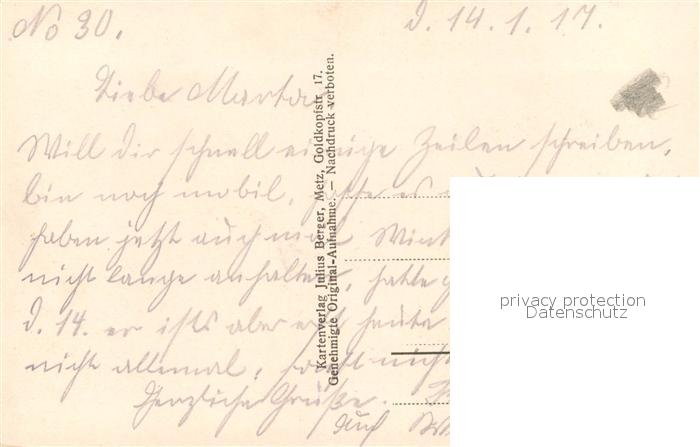 No 30.
d. 14. 1. 17.
Liebe Marta
Will dir schnell einige Zeilen schreiben,
bin noch mobil, hoffe es
haben jetzt auch mal Wint
nicht lange anhalten, hatte
d. 14. er ists aber erst heute
nicht allemal, sonst nicht
Herzliche Grüße.
Auf
Kartenverlag Julius Berger, Metz, Goldkopfstr. 17.
Genehmigte Original-Aufnahme. — Nachdruck verboten.
privacy protection
Datenschutz